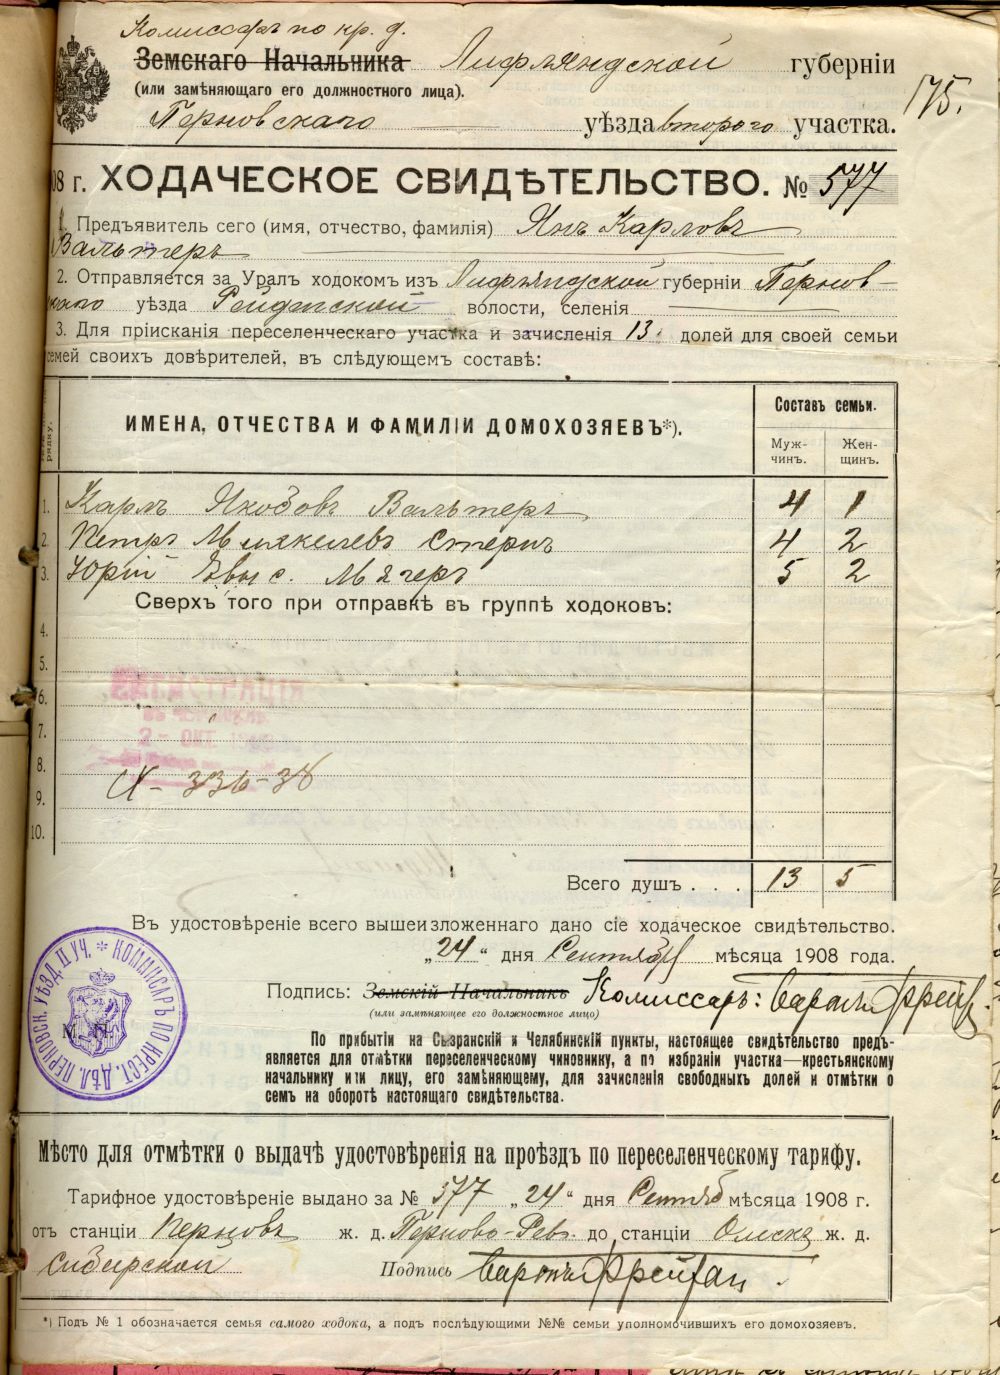 Комиссаръ по кр. д.
Земскаго Начальника Лифляндской губерніи
(или замѣняющаго его должностного лица).
175.
Перновскаго уѣзда второго участка.
08 г. ХОДАЧЕСКОЕ СВИДѢТЕЛЬСТВО. № 577
1. Предъявитель сего (имя, отчество, фамилія) Янъ Карловъ
Вальтеръ
2. Отправляется за Уралъ ходокомъ изъ Лифляндской губерніи Пернов-
скаго уѣзда Рейдтской волости, селенія
3. Для пріисканія переселенческаго участка и зачисленія 13 долей для своей семьи
семей своихъ довѣрителей, въ слѣдующемъ составѣ:
рядку.
ИМЕНА, ОТЧЕСТВА И ФАМИЛІИ ДОМОХОЗЯЕВЪ*).
Составъ семьи.
Муж-
чинъ.
Жен-
щинъ.
1. Карлъ Якобовъ Вальтеръ 4 1
2. Петръ Стернъ 4 2
3. Юрій Мягеръ 5 2
Сверхъ того при отправкѣ въ группѣ ходоковъ:
4.
5.
6.
7.
8.
9.
10.
РЕГИСТРАЦІЯ
2- ОКТ.
336-38
Всего душъ . . . 13 5
Въ удостовѣреніе всего вышеизложеннаго дано сіе ходаческое свидѣтельство.
„24“ дня Сентября мѣсяца 1908 года.
Подпись: Земскій Начальникъ Комиссаръ: Баронъ Фрейтаг
(или замѣняющее его должностное лицо)
КОММИСАРЪ ПО КРЕСТ. ДѢЛ. ПЕРНОВСК. УѢЗД. II УЧ. *
М. П.
По прибытіи на Сызранскій и Челябинскій пункты, настоящее свидѣтельство предъ-
является для отмѣтки переселенческому чиновнику, а по избраніи участка—крестьянскому
начальнику или лицу, его замѣняющему, для зачисленія свободныхъ долей и отмѣтки о
семъ на оборотѣ настоящаго свидѣтельства.
Мѣсто для отмѣтки о выдачѣ удостовѣренія на проѣздъ по переселенческому тарифу.
Тарифное удостовѣреніе выдано за № 577 „24“ дня Сентяб мѣсяца 1908 г.
отъ станціи Перновъ ж. д. Перновъ-Рев. до станціи Омскъ ж. д.
Сибирской Подпись Баронъ Фрейтаг
*) Подъ № 1 обозначается семья самого ходока, а подъ послѣдующими №№ семьи уполномочившихъ его домохозяевъ.